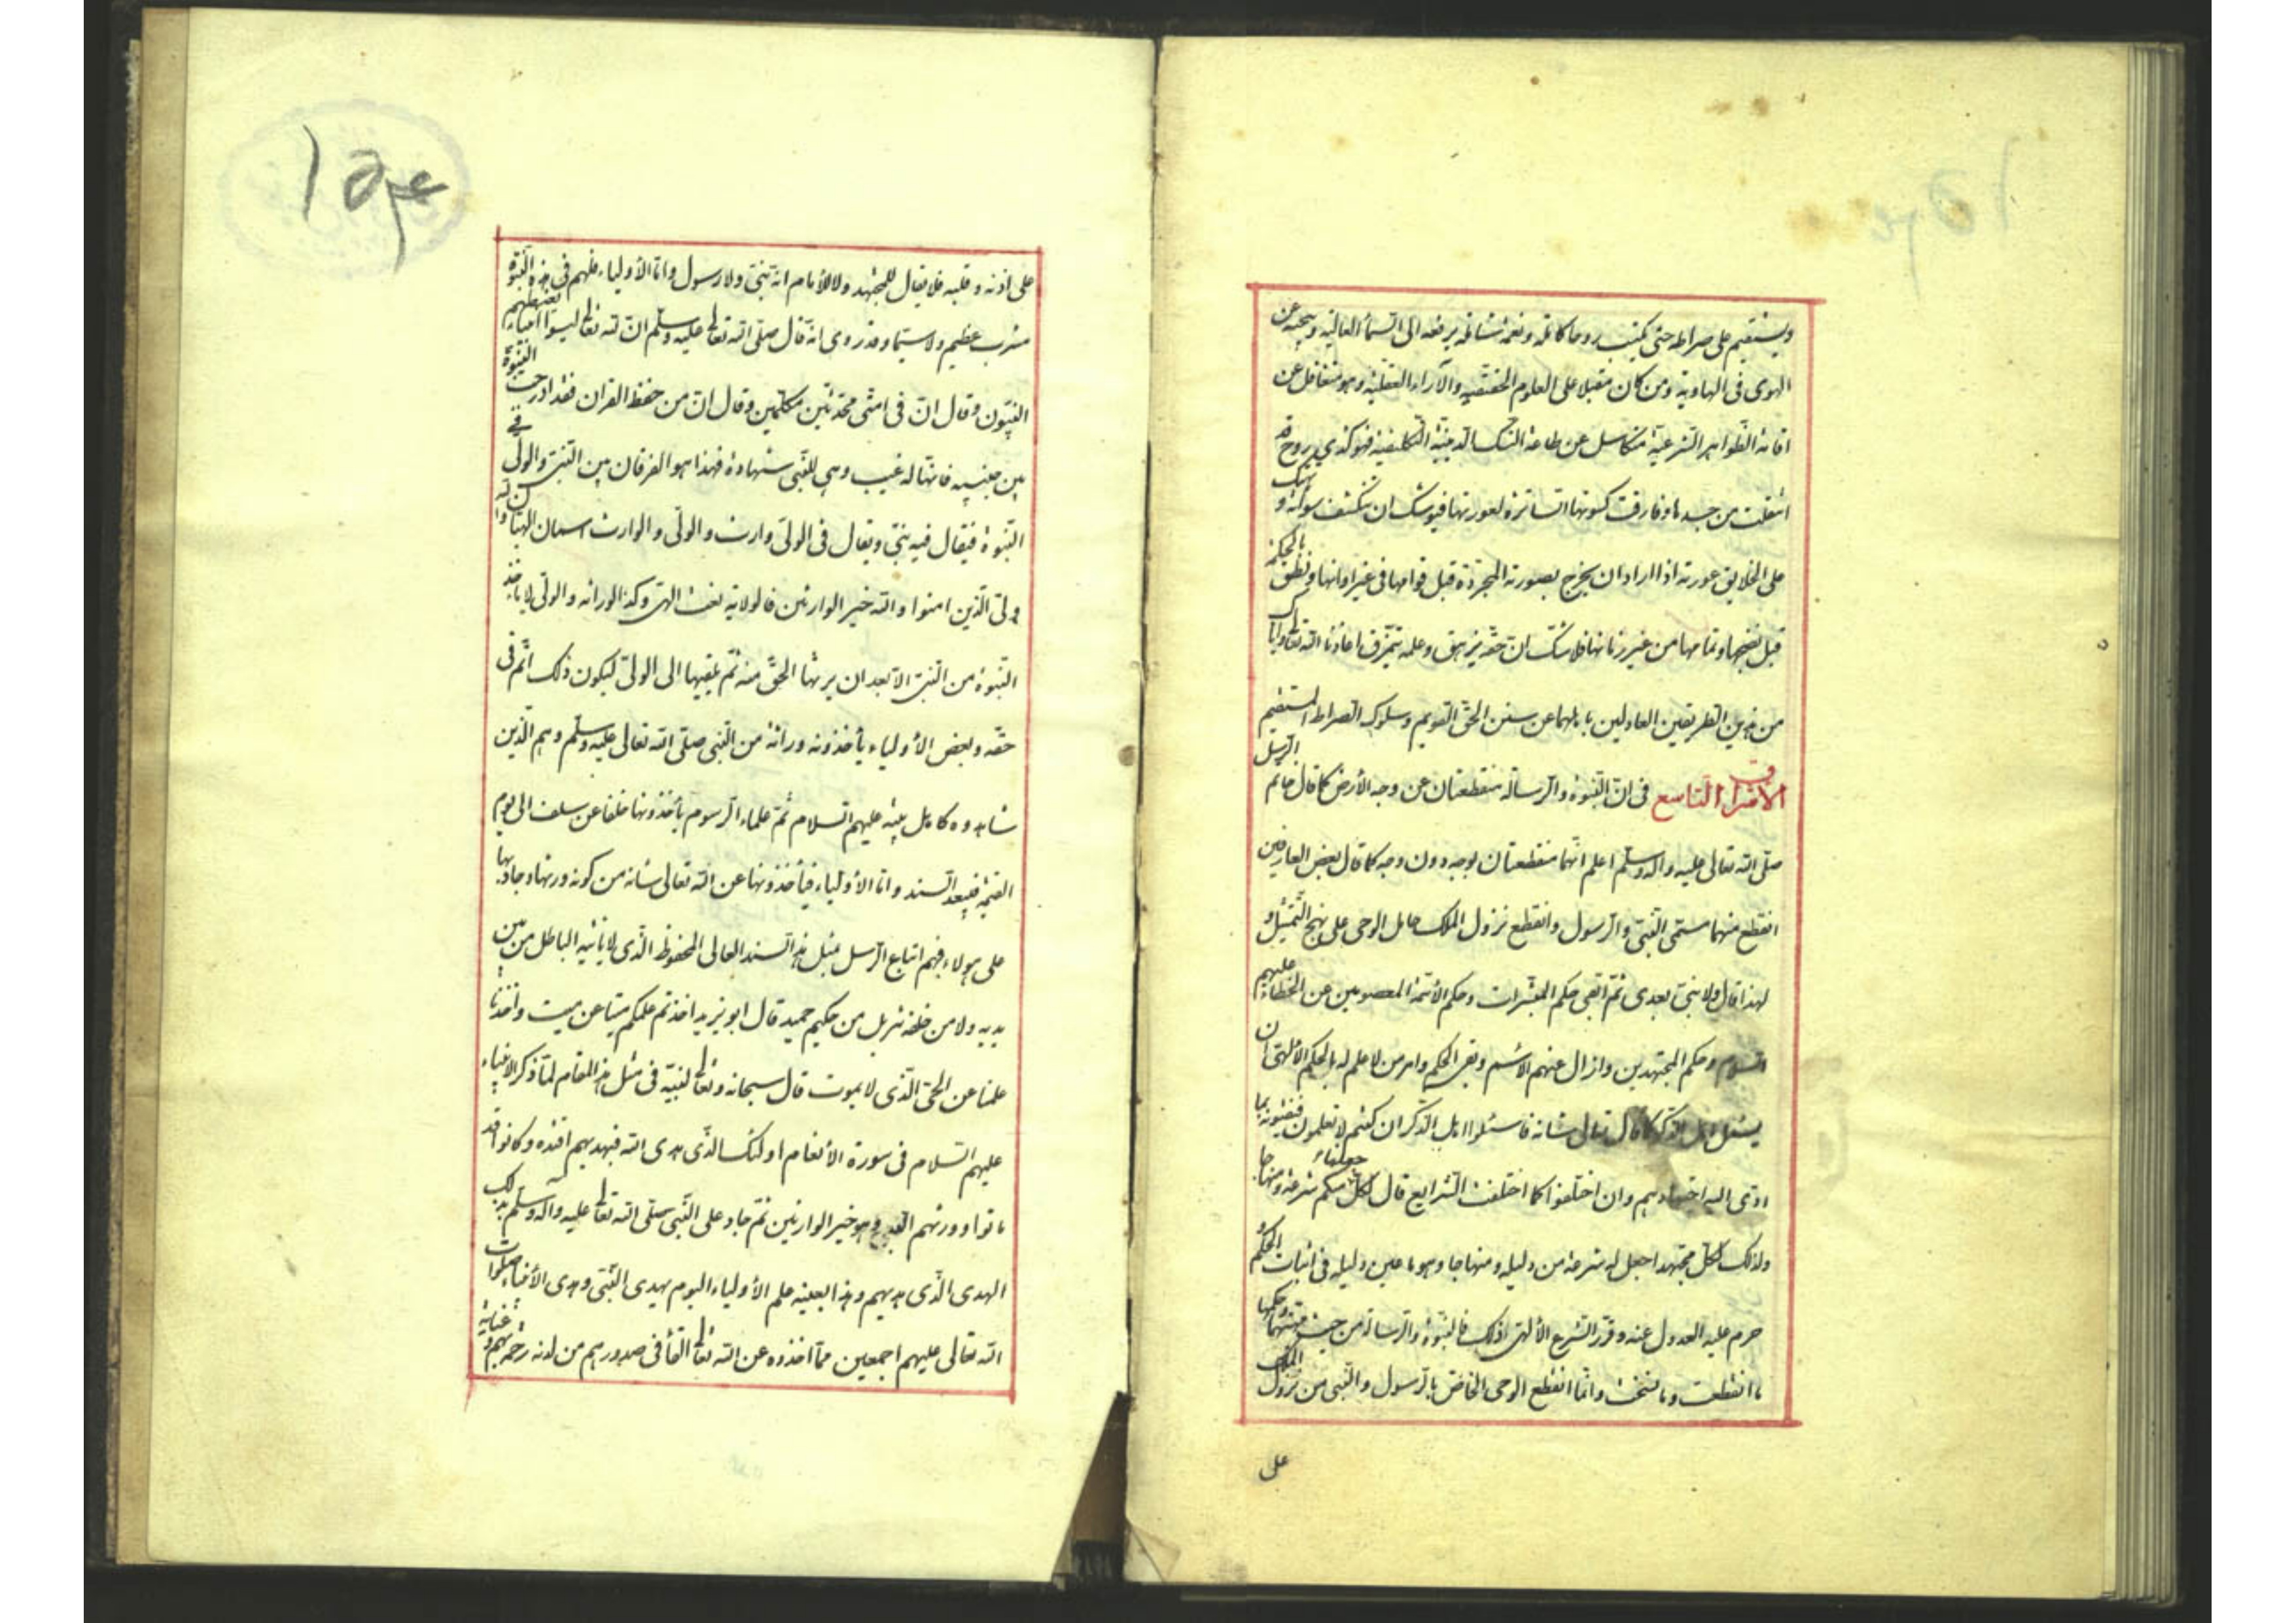 ويستقيم على صراطه حتى يكتسب روحا كاملة ونعمة شاملة يرفعه الى السماء العالية وينجيه عن
الهوى فى الهاوية ومن كان مقبلا على العلوم الحقيقية والآراء العقلية وهو متغافل عن
اقامة الظواهر الشرعية متكاسل عن طاعة النسك الدينية التكليفية فهو كذي روح قد
انتقلت من جسدها وفارقت كسوتها الساترة لعورتها فيوشك ان تنكشف سوأته و
على الخلايق عورته اذا اراد ان يخرج بصورته المجردة قبل قوامها فى غير اوانها ونطق بالحكمة
قبل نضجها وتمامها من غير زمانها فلا شك ان حقه يزهق وعلمه يتمزق اعاذنا الله تعالى واياكم
من هذين الطريقين العادلين باهلهما عن سنن الحق القويم وسلوك الصراط المستقيم
الاشراق التاسع فى ان النبوة والرسالة منقطعتان عن وجه الأرض كما قال خاتم الرسل
صلى الله تعالى عليه واله وسلم اعلم انهما منقطعتان بوجه دون وجه كما قال بعض العارفين
انقطع منهما مسمى النبى والرسول وانقطع نزول الملك حامل الوحى على نهج التمثيل و
لهذا قال ولا نبى بعدى ثم ابقى حكم المبشرات وحكم الأئمة المعصومين عن الخطاء عليهم
السلام وحكم المجتهدين وازال عنهم الاسم وبقى الحكم وامر من لا علم له بالحكم الالهى ان
يسئل اهل الذكر كما قال تعالى شانه فاسئلوا اهل الذكر ان كنتم لا تعلمون فيفتونه بما
ادى اليه اجتهادهم وان اختلفوا كما اختلفت الشرايع قال لكل جعلنا منكم شرعة ومنهاجا
ولذلك لكل مجتهد اجعل له شرعة من دليله ومنهاجا وهو ما عين دليله فى اثبات الحكم و
حرم عليه العدول عنه وقرر الشرع الألهى ذلك فالنبوة والرسالة من حيث مهيتهما وحكمها
ما انقطعت وما نسخت وانما انقطع الوحى الخاص بالرسول والنبى من نزول الملك
على
على اذنه وقلبه فلا يقال للمجتهد ولا للأمام انه نبى ولا رسول واما الأولياء فلهم فى هذه النبوة
مشرب عظيم ولا سيما وقد روى انه قال صلى الله تعالى عليه وسلم ان لله تعالى ليسوا انبياء يغبطهم
النبيون وقال ان فى امتى محدثين مكلمين وقال ان من حفظ القران فقد ادرجت النبوة
بين جنبيه فانها له غيب وهى للنبى شهادة فهذا هو الفرقان بين النبى والولى فى
النبوة فيقال فيه نبى ويقال فى الولى وارث والولى والوارث اسمان الهيان والله
ولى الذين امنوا والله خير الوارثين فالولاية نعت الهى وكذا الوراثه والولى لا ياخذ
النبوة من النبى الا بعد ان يرثها الحق منه ثم يلقيها الى الولى ليكون ذلك اتم فى
حقه وبعض الأولياء يأخذونه وراثة من النبى صلى الله تعالى عليه وسلم وهم الذين
شاهدوه كاهل بيته عليهم السلام ثم علماء الرسوم يأخذونها خلفا عن سلف الى يوم
القيمة فيبعد السند واما الأولياء فيأخذونها عن الله تعالى شانه من كونه ورثها وجاد بها
على هولاء فهم اتباع الرسل بمثل هذا السند العالى المحفوظ الذى لا ياتيه الباطل من بين
يديه ولا من خلفه تنزيل من حكيم حميد قال ابو يزيد اخذتم علمكم ميتا عن ميت واخذنا
علمنا عن الحى الذى لا يموت قال سبحانه وتعالى لنبيه فى مثل هذا المقام لما ذكر الانبياء
عليهم السلام فى سورة الأنعام اولئك الذى هدى الله فبهديهم اقتده وكانوا قد
ماتوا وورثهم الله وهو خير الوارثين ثم جاد على النبى صلى الله تعالى عليه واله وسلم بذلك
الهدى الذى هديهم وهذا بعينه علم الأولياء اليوم بهدى النبى وهدى الأنبياء صلوات
الله تعالى عليهم اجمعين مما اخذوه عن الله تعالى القاه فى صدورهم من لدنه رحمة بهم وعناية